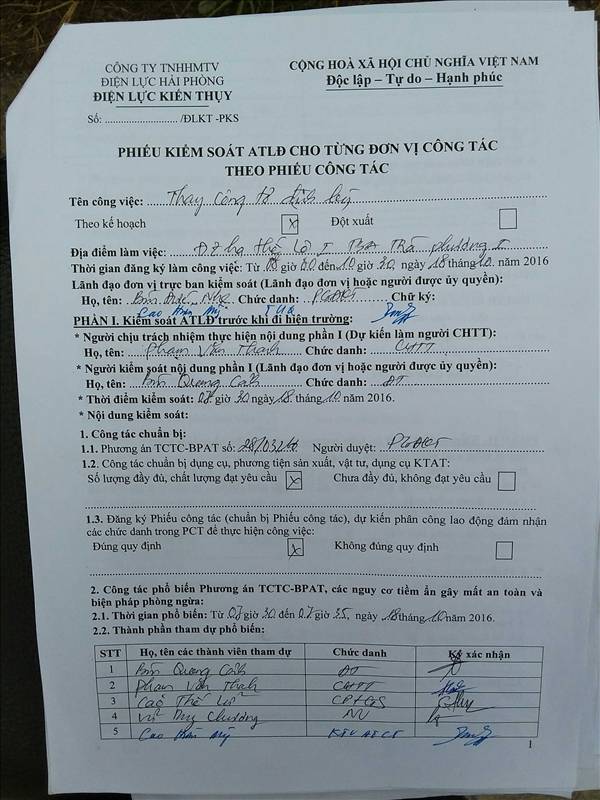 CÔNG TY TNHHMTV
ĐIỆN LỰC HẢI PHÒNG
ĐIỆN LỰC KIẾN THỤY
Số: ............................ /ĐLKT -PKS
CỘNG HOÀ XÃ HỘI CHỦ NGHĨA VIỆT NAM
Độc lập – Tự do – Hạnh phúc
PHIẾU KIỂM SOÁT ATLĐ CHO TỪNG ĐƠN VỊ CÔNG TÁC
THEO PHIẾU CÔNG TÁC
Tên công việc: Thay công tơ định kỳ
Theo kế hoạch x Đột xuất
Địa điểm làm việc: Thế Lộ I
Thời gian đăng ký làm công việc: Từ 08 giờ 00 đến 10 giờ 30 ngày 18 tháng 10 năm 2016
Lãnh đạo đơn vị trực ban kiểm soát (Lãnh đạo đơn vị hoặc người được ủy quyền):
Họ, tên: Chức danh: Chữ ký:
Cao
PHẦN I. Kiểm soát ATLĐ trước khi đi hiện trường:
* Người chịu trách nhiệm thực hiện nội dung phần I (Dự kiến làm người CHTT):
Họ, tên: Phạm Văn Thanh Chức danh: CHTT
* Người kiểm soát nội dung phần I (Lãnh đạo đơn vị hoặc người được ủy quyền):
Họ, tên: Quang Chức danh: ĐT
* Thời điểm kiểm soát: 07 giờ 30 ngày 18 tháng 10 năm 2016.
* Nội dung kiểm soát:
1. Công tác chuẩn bị:
1.1. Phương án TCTC-BPAT số: Người duyệt:
1.2. Công tác chuẩn bị dụng cụ, phương tiện sản xuất, vật tư, dụng cụ KTAT:
Số lượng đầy đủ, chất lượng đạt yêu cầu x Chưa đầy đủ, không đạt yêu cầu
1.3. Đăng ký Phiếu công tác (chuẩn bị Phiếu công tác), dự kiến phân công lao động đảm nhận
các chức danh trong PCT để thực hiện công việc:
Đúng quy định x Không đúng quy định
2. Công tác phổ biến Phương án TCTC-BPAT, các nguy cơ tiềm ẩn gây mất an toàn và
biện pháp phòng ngừa:
2.1. Thời gian phổ biến: Từ 07 giờ 30 đến 07 giờ 35 ngày 18 tháng 10 năm 2016.
2.2. Thành phần tham dự phổ biến:
STT Họ, tên các thành viên tham dự Chức danh Ký xác nhận
1 Quang ĐT
2 Phạm Văn Thanh CHTT
3 Cao Thế
4 Vũ Duy Chương NV
5 Cao
1